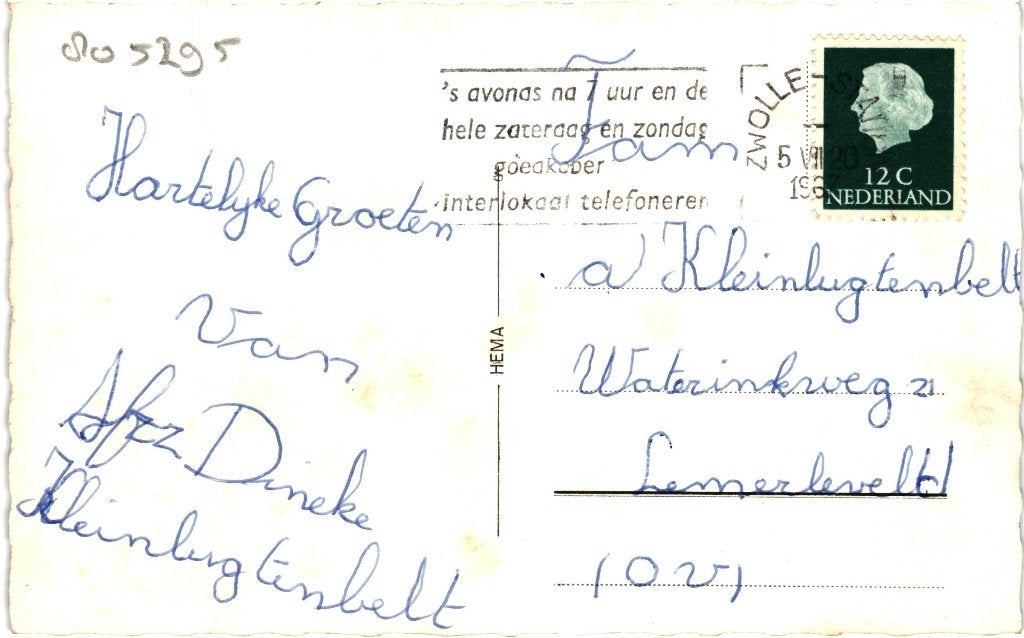 5295
Hartelyke Groeten
Van
Afz Dineke
Kleinlugtenbelt
HEMA
's avonds na 7 uur en de
hele zaterdag en zondag
goedkoper
interlokaal telefoneren
ZWOLLE-STATION
5 VII 20
12 C
NEDERLAND
Fam
a Kleinlugtenbelt
Waterinkweg 21
Lemerleveld
(OV)